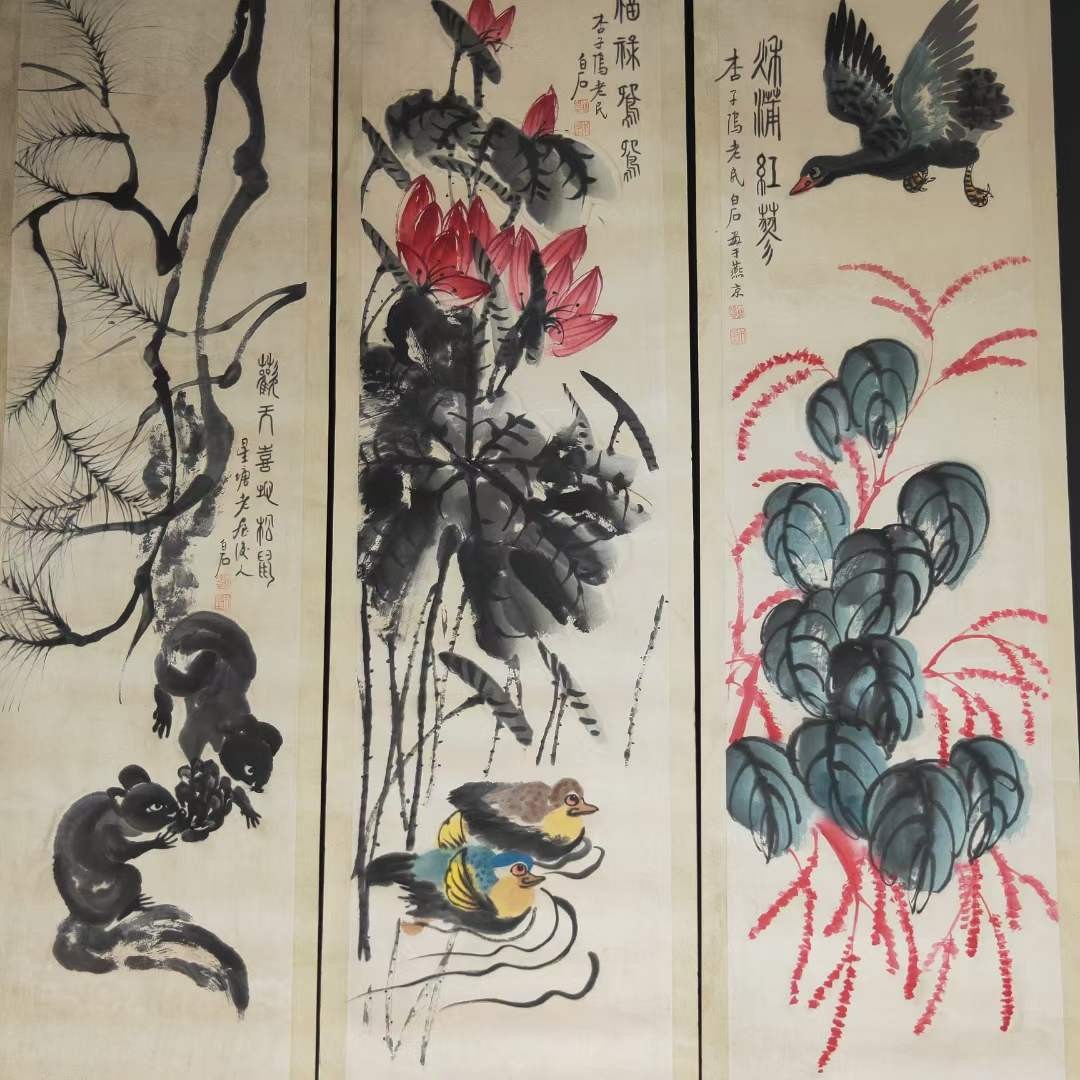 秋蒲紅蓼
杏子隖老民白石畫于燕京
福祿鴛鴦
杏子隖老民
白石
歡天喜地松鼠
星塘老屋後人
白石